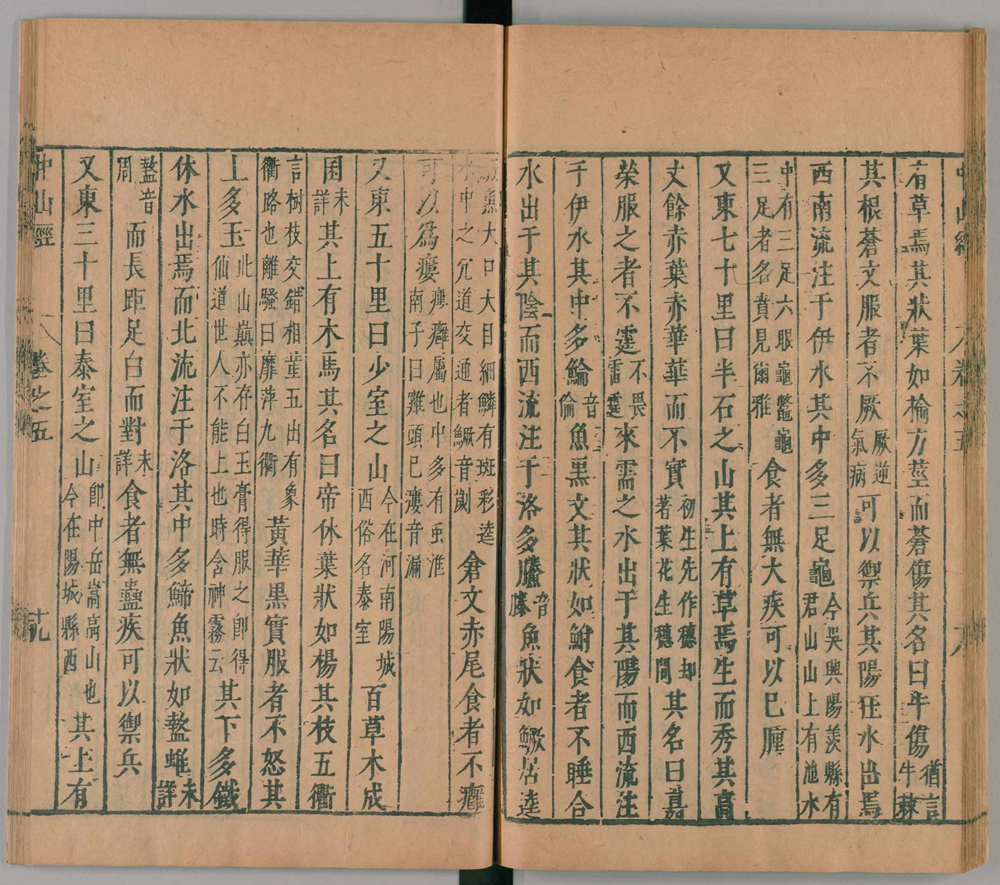 有草焉其狀葉如榆方莖而蒼傷其名曰牛傷猶言牛棘
其根蒼文服者不厥厥逆氣病可以禦兵其陽狂水出焉
西南流注于伊水其中多三足龜今吳興陽羨縣有君山山上有池水
中有三足六眼龜鼈龜三足者名賁見爾雅食者無大疾可以已腫
又東七十里曰半石之山其上有草焉生而秀其高
丈餘赤葉赤華華而不實初生先作穗却著葉花生穗間其名曰嘉
榮服之者不霆不畏雷霆來需之水出于其陽而西流注
于伊水其中多鯩音倫魚黑文其狀如鮒食者不睡合
水出于其陰而西流注于洛多䲢音滕魚狀如鱖居逵
魚大口大目細鱗有斑彩逵水中之穴道交通者鱖音劌倉文赤尾食者不癰
可以為瘻癰屬也中多有虫淮南子曰雞頭已瘻音漏
又東五十里曰少室之山今在河南陽城西俗名泰室百草木成
囷未詳其上有木焉其名曰帝休葉狀如楊其枝五衢
言樹枝交錯相重五出有象衢路也離騷曰靡萍九衢黃華黑實服者不怒其
上多玉此山巔亦存白玉膏得服之即得仙道世人不能上也時含神霧云其下多鐵
休水出焉而北流注于洛其中多䱱魚狀如盩蜼未詳
盩音周而長距足白而對未詳食者無蠱疾可以禦兵
又東三十里曰泰室之山即中岳嵩高山也今在陽城縣西其上有
中山經 卷之五 十九